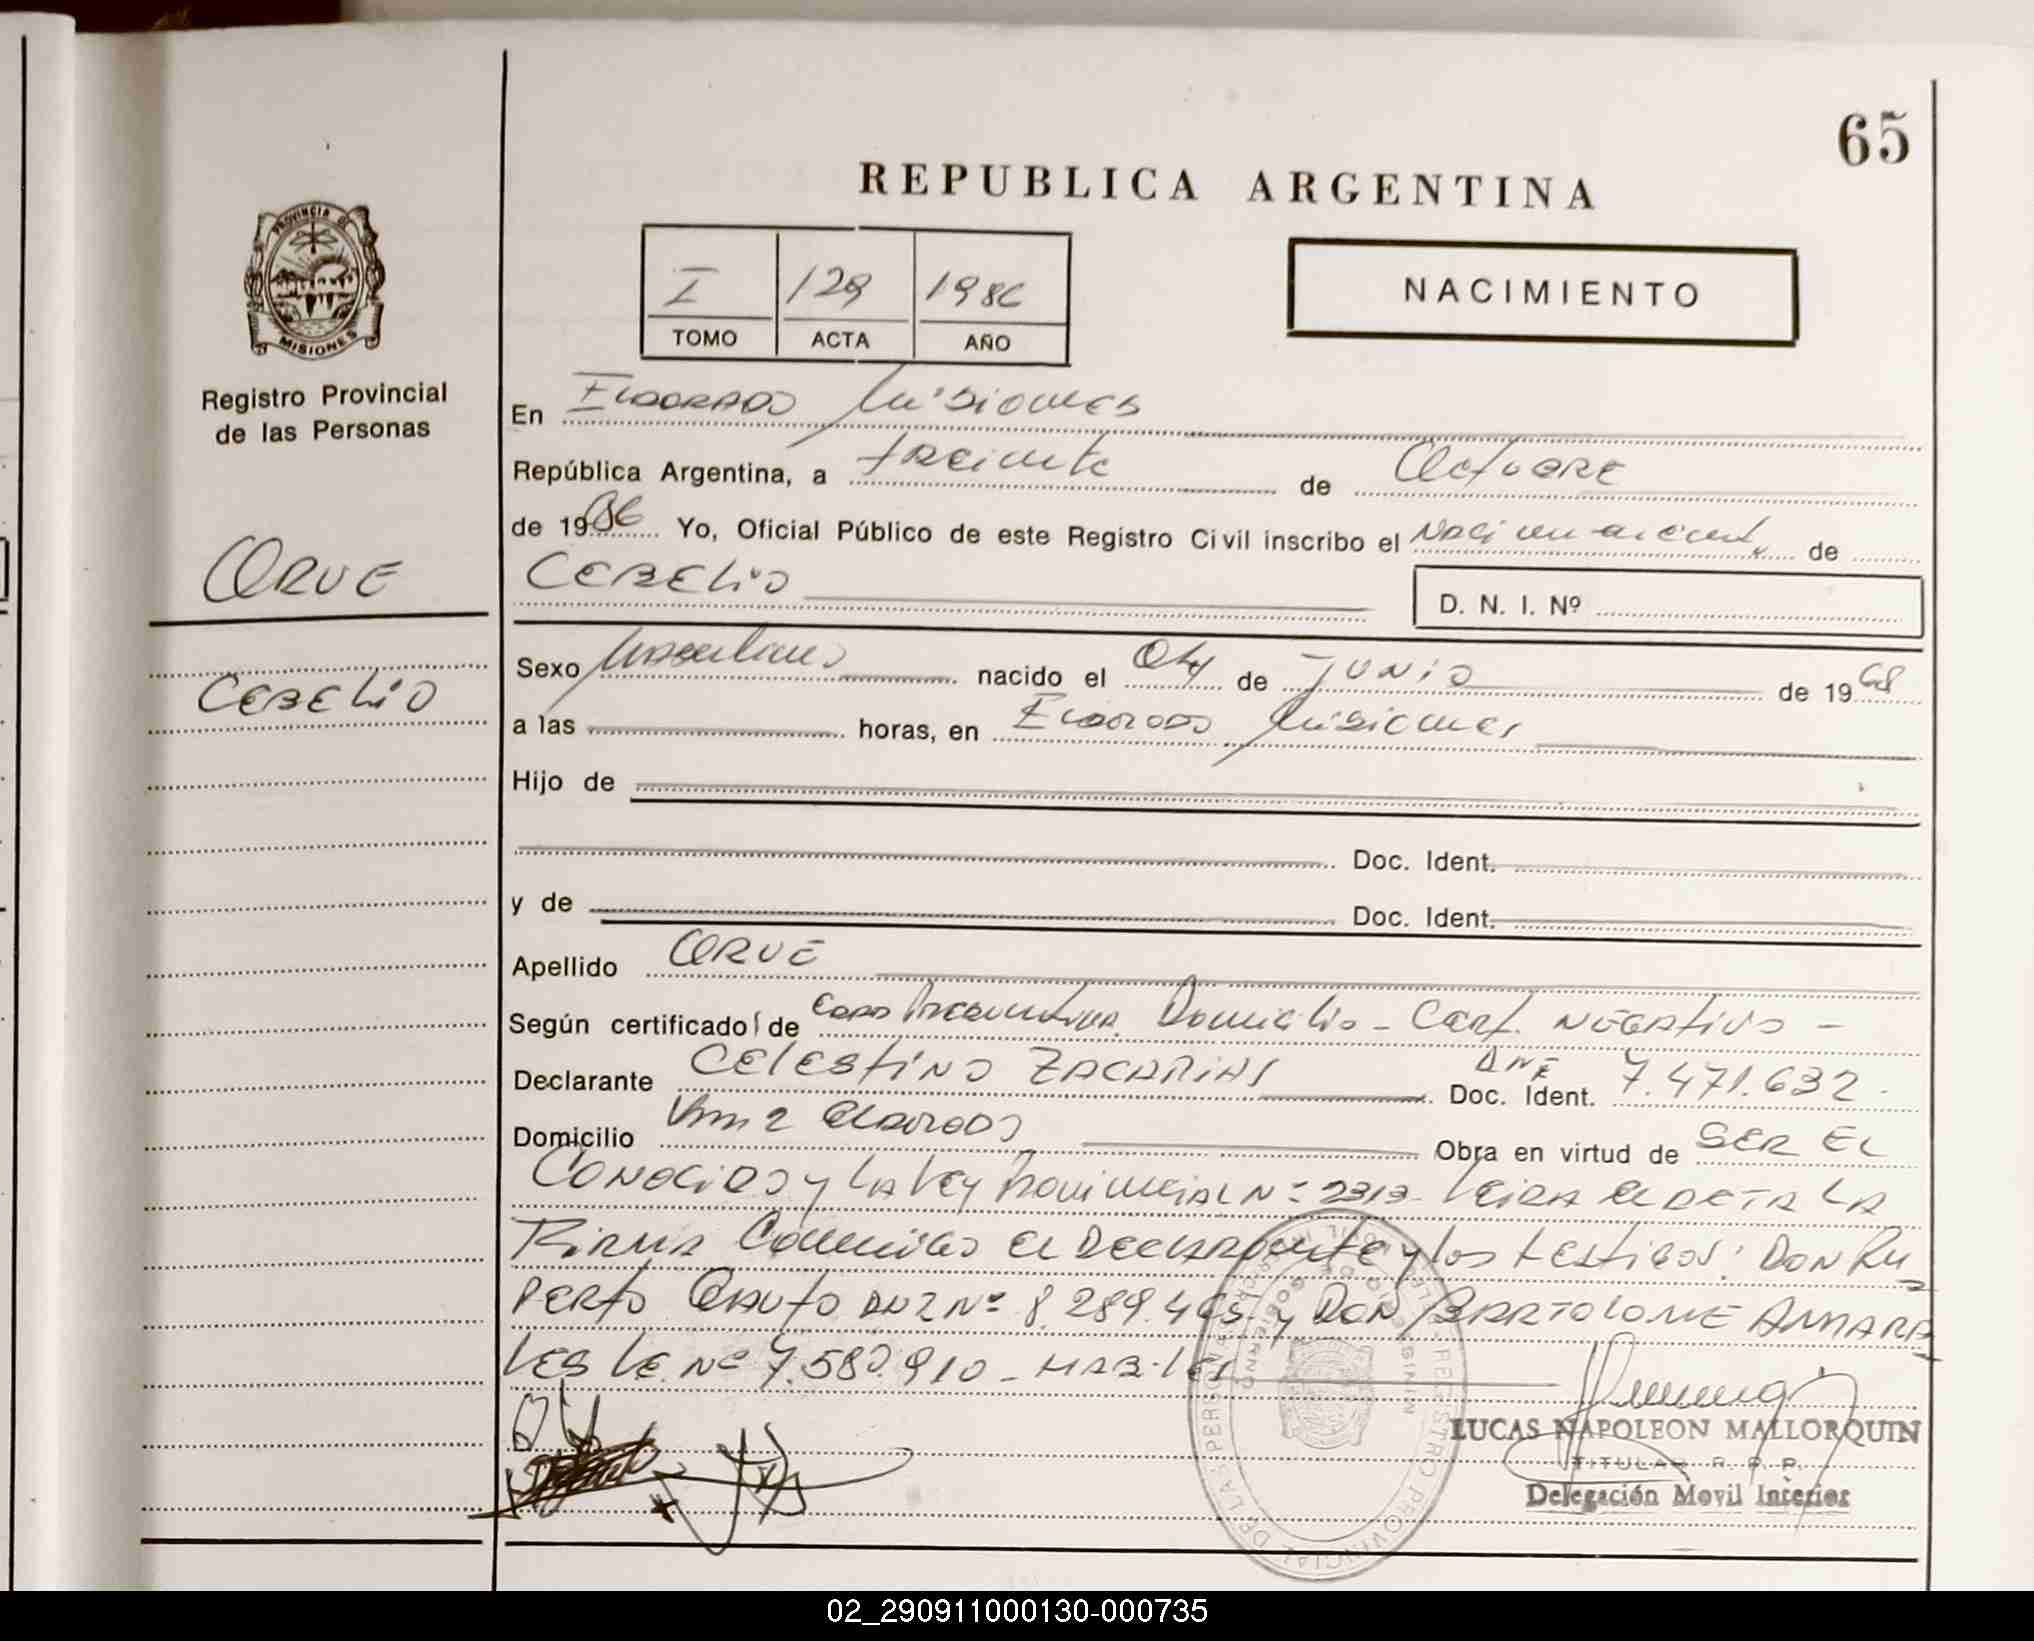 65
REPUBLICA ARGENTINA
PROVINCIA DE
MISIONES
Registro Provincial
de las Personas
I 129 1986
TOMO ACTA AÑO
NACIMIENTO
En Eldorado Misiones
República Argentina, a treinta de Octubre
de 1986 Yo, Oficial Público de este Registro Civil inscribo el Nacimiento de
CEBELIO
D. N. I. Nº
ORUE
CEBELIO
Sexo Masculino nacido el 04 de JUNIO de 1968
a las horas, en Eldorado Misiones
Hijo de
Doc. Ident.
y de Doc. Ident.
Apellido ORUE
Según certificado de Domicilio - Cert. NEGATIVO -
Declarante CELESTINO ZACARIAS Doc. Ident. DNI 7.471.632.
Domicilio Km 2 Eldorado Obra en virtud de SER EL
CONOCIDO y LA Ley Provincial Nº 2313- LEIDA EL ACTA LA
FIRMA Conmigo el Declarante y los testigos: DON RU
PERTO DNI Nº 8.289.465 y DON BARTOLOME AMARA
LES LE. Nº 7.580.910 - HABILES
LUCAS NAPOLEON MALLORQUIN
TITULAR R. P. P.
Delegación Movil Interior
REGISTRO PROVINCIAL DE LAS PERSONAS
02_290911000130-000735